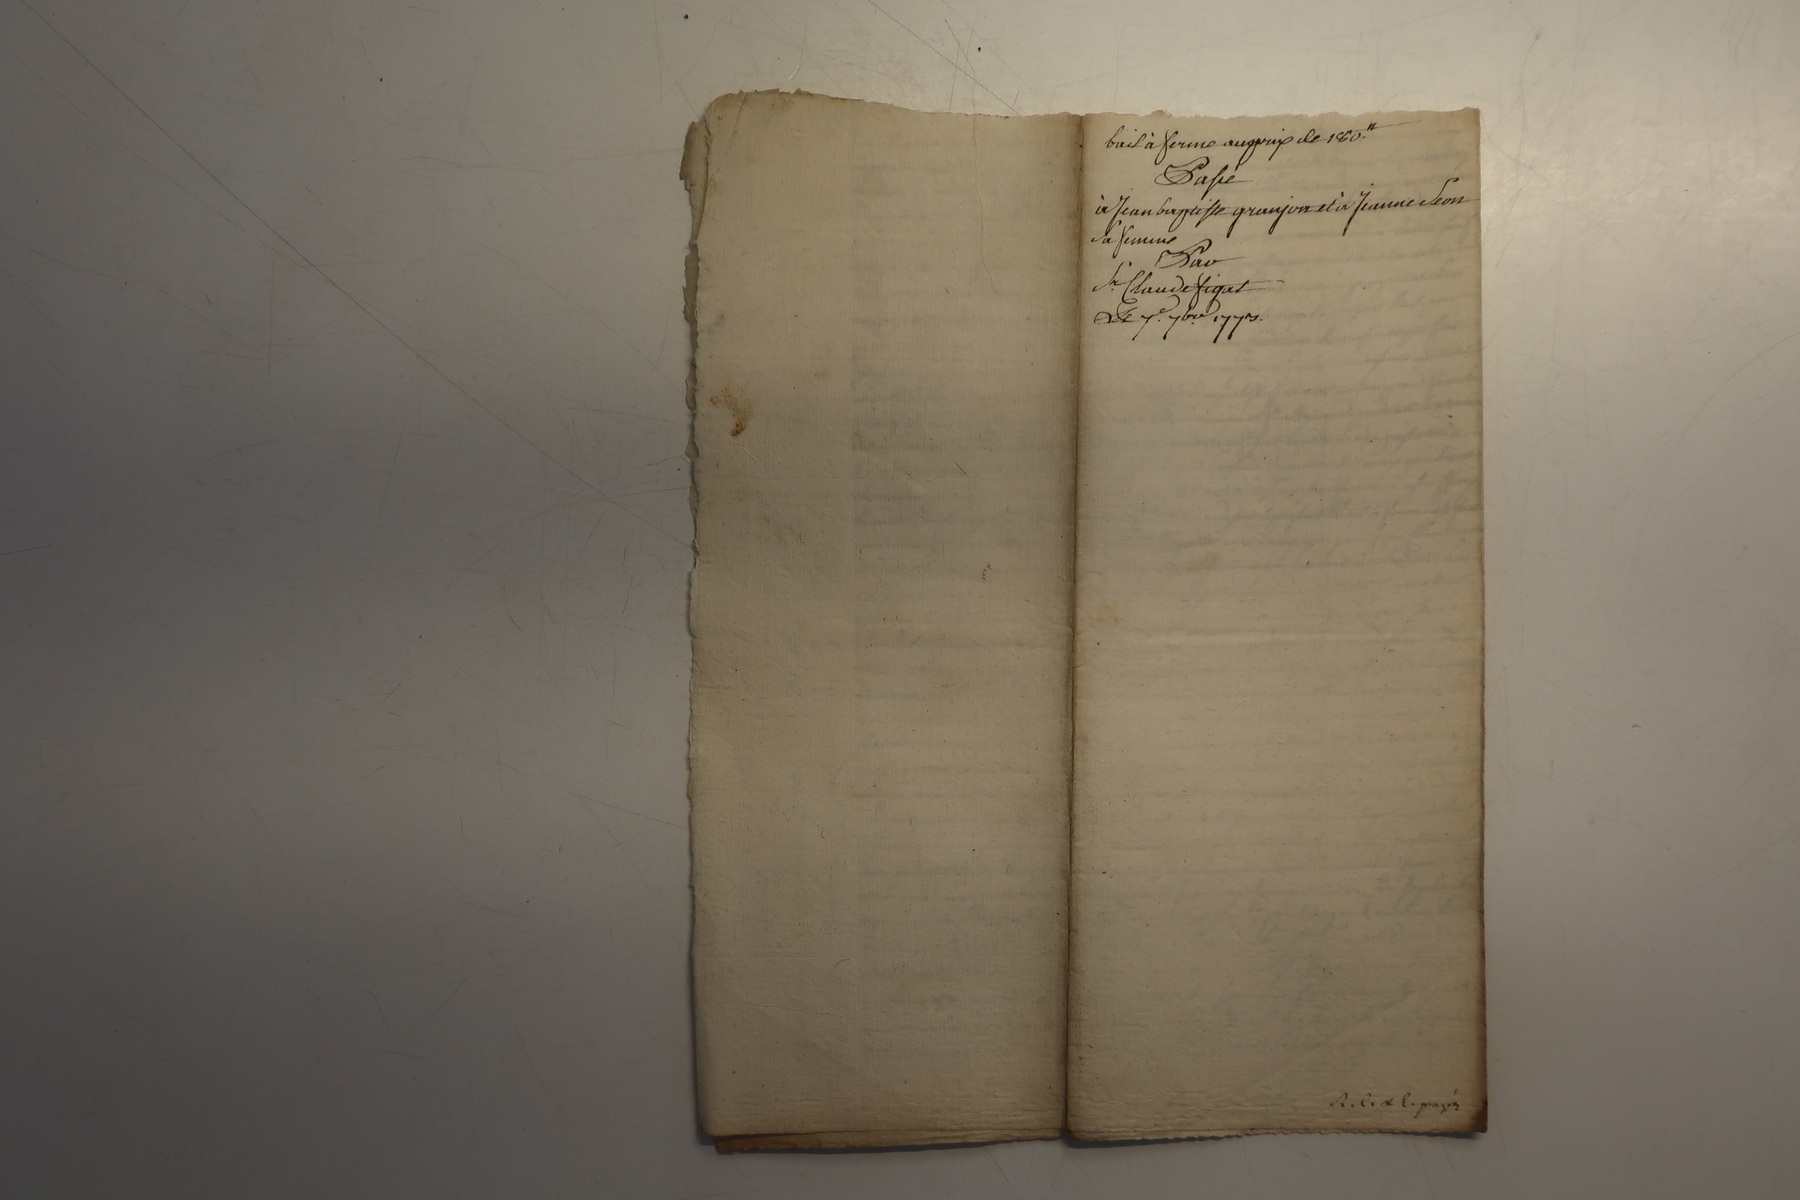 bail à ferme au prix de 180.ᵗᵗ
Passé
à Jean baptiste granjon et à Jeanne Seon
Sa femme
Par
Sʳ. Claude figat
Le 7ᵉ. 7bre 1775.